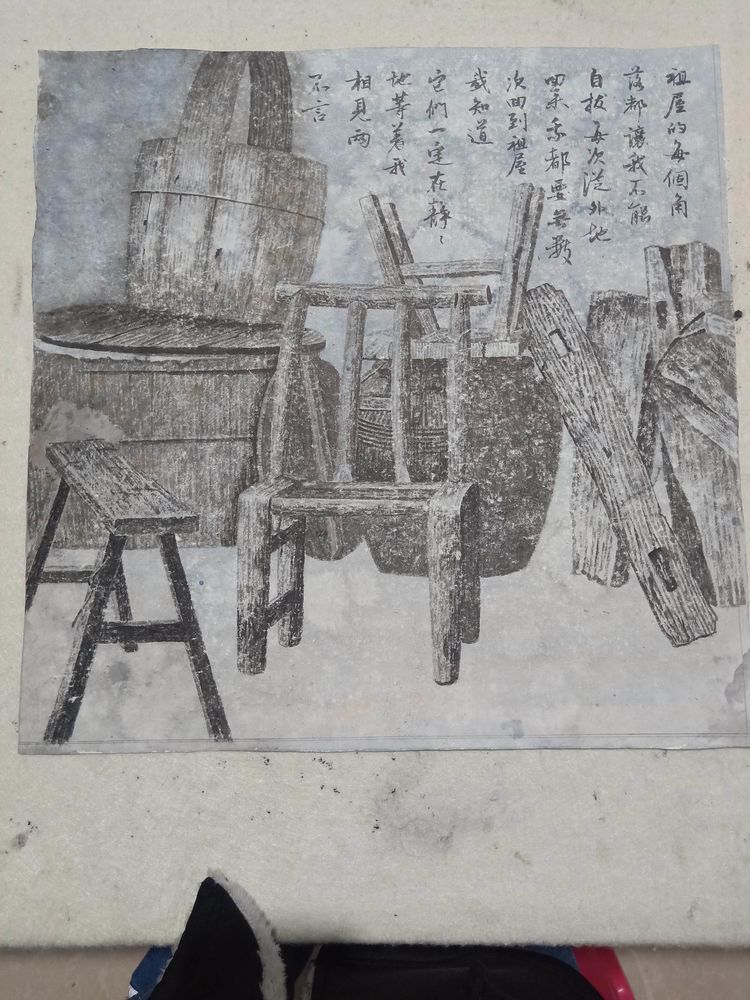 祖屋的每個角
落都讓我不能
自拔每次從外地
回來我都要無數
次回到祖屋
我知道
它們一定在靜々
地等着我
相見兩
不言